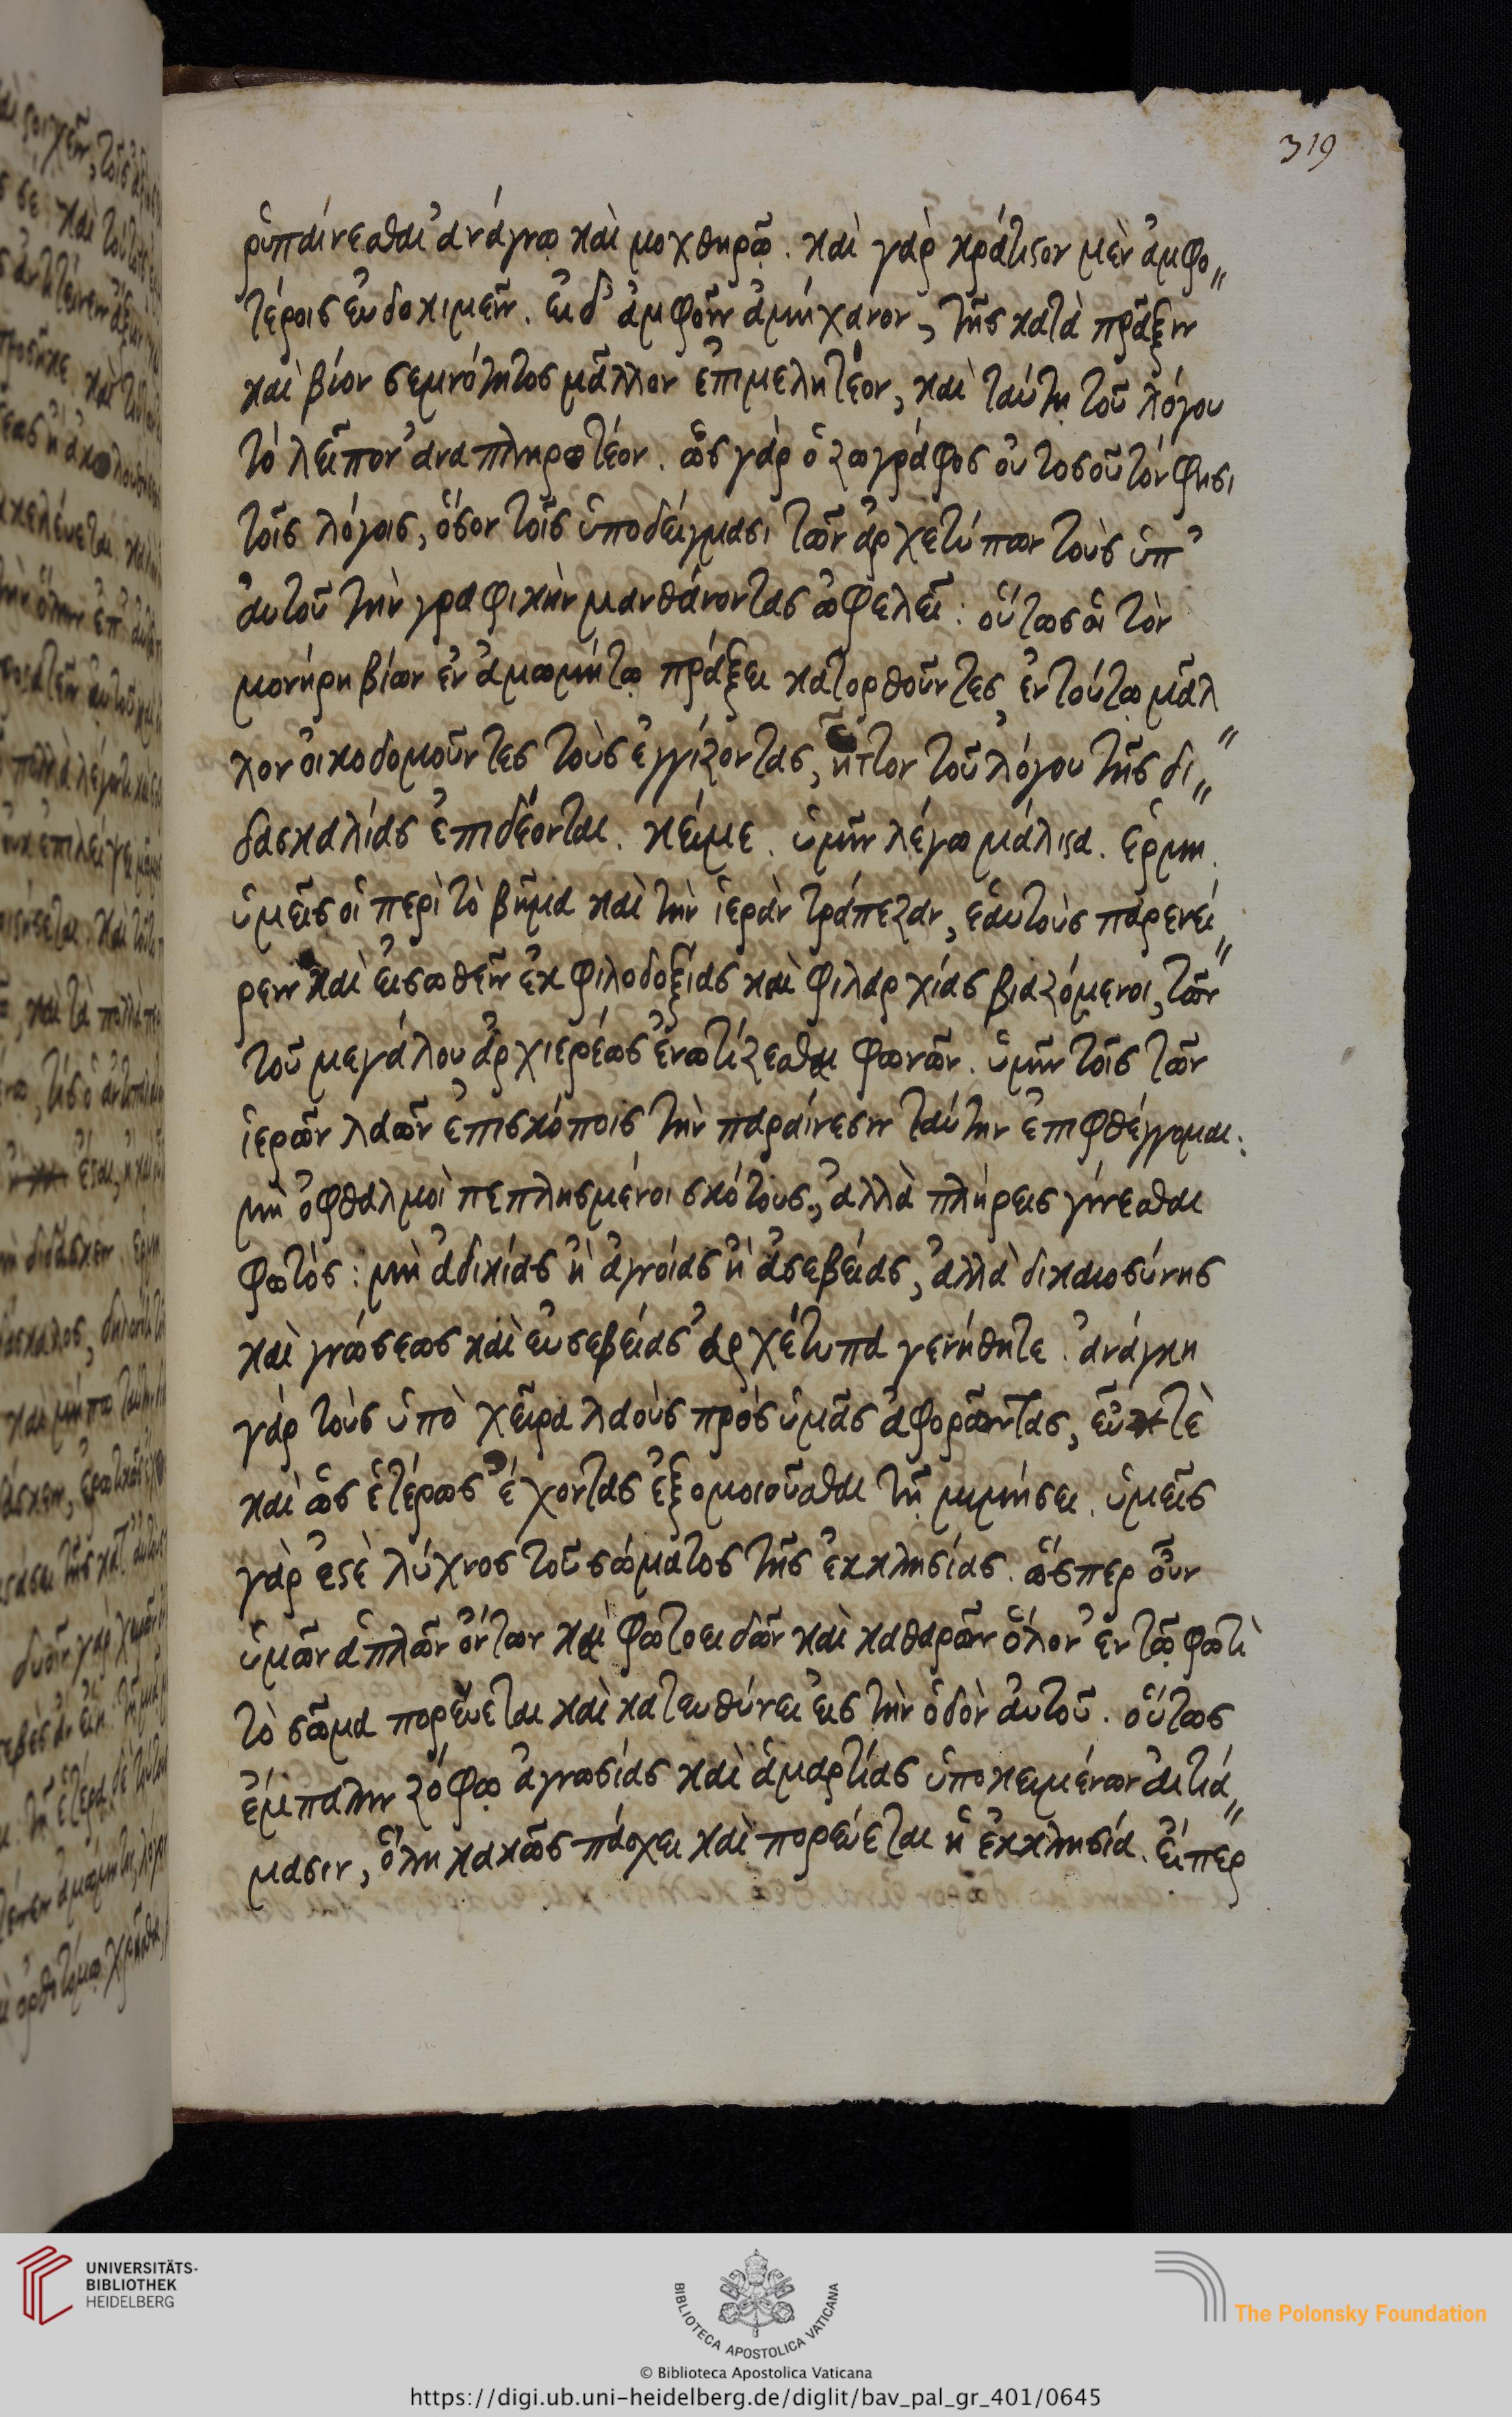 319
ῥυπαίνεσθαι ἀνάγνῳ καὶ μοχθηρῷ. καὶ γὰρ κράτιστον μὲν ἀμφο〃
τέροις εὐδοκιμεῖν. εἰ δ' ἀμφοῖν ἀμήχανον, τῆς κατὰ πρᾶξιν
καὶ βίον σεμνότητος μᾶλλον ἐπιμελητέον, καὶ ταύτῃ τοῦ λόγου
τὸ λεῖπον ἀναπληρωτέον. ὡς γὰρ ὁ ζωγράφος οὐ τοσοῦτόν φησι
τοῖς λόγοις, ὅσον τοῖς ὑποδείγμασι τῶν ἀρχετύπων τοὺς ὑπ'
αὐτοῦ τὴν γραφικὴν μανθάνοντας ὠφελεῖ: οὕτως οἱ τὸν
μονήρη βίον ἐν ἀμωμήτῳ πράξει κατορθοῦντες, ἐν τούτῳ μᾶλ〃
λον οἰκοδομοῦντες τοὺς ἐγγίζοντας, ἧττον τοῦ λόγου τῆς δι〃
δασκαλίας ἐπιδέονται. κείμε. ὑμῖν λέγω μάλιστα. ἑρμη.
ὑμεῖς οἱ περὶ τὸ βῆμα καὶ τὴν ἱερὰν τράπεζαν, ἑαυτοὺς παρενεί〃
ρειν καὶ εἰσωθεῖν ἐκ φιλοδοξίας καὶ φιλαρχίας βιαζόμενοι, τῶν
τοῦ μεγάλου ἀρχιερέως ἐνωτίζεσθαι φωνῶν. ὑμῖν τοῖς τῶν
ἱερῶν λαῶν ἐπισκόποις τὴν παραίνεσιν ταύτην ἐπιφθέγγομαι:
μὴ ὀφθαλμοὶ πεπλησμένοι σκότους, ἀλλὰ πλήρεις γίνεσθαι
φωτός: μὴ ἀδικίας ἢ ἀγνοίας ἢ ἀσεβείας, ἀλλὰ δικαιοσύνης
καὶ γνώσεως καὶ εὐσεβείας ἀρχέτυπα γενήθητε. ἀνάγκη
γὰρ τοὺς ὑπὸ χεῖρα λαοὺς πρὸς ὑμᾶς ἀφορῶντας, εὖ τὲ
καὶ ὡς ἑτέρως ἔχοντας ἐξομοιοῦσθαι τῇ μιμήσει. ὑμεῖς
γὰρ ἐστὲ λύχνος τοῦ σώματος τῆς ἐκκλησίας. ὥσπερ οὖν
ὑμῶν ἁπλῶν ὄντων καὶ φωτοειδῶν καὶ καθαρῶν ὅλον ἐν τῷ φωτὶ
τὸ σῶμα πορεύεται καὶ κατευθύνει εἰς τὴν ὁδὸν αὐτοῦ. οὕτως
ἔμπαλιν ζόφῳ ἀγνωσίας καὶ ἁμαρτίας ὑποκειμένων αἰτιά〃
μασιν, ὅλη κακῶς πάσχει καὶ πορεύεται ἡ ἐκκλησία. εἴπερ
UNIVERSITÄTS-
BIBLIOTHEK
HEIDELBERG
BIBLIOTECA APOSTOLICA VATICANA
The Polonsky Foundation
© Biblioteca Apostolica Vaticana
https://digi.ub.uni-heidelberg.de/diglit/bav_pal_gr_401/0645